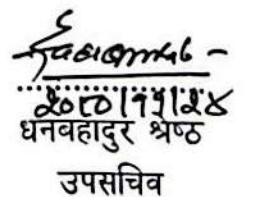 २०८०|११|२४
धनबहादुर श्रेष्ठ
उपसचिव